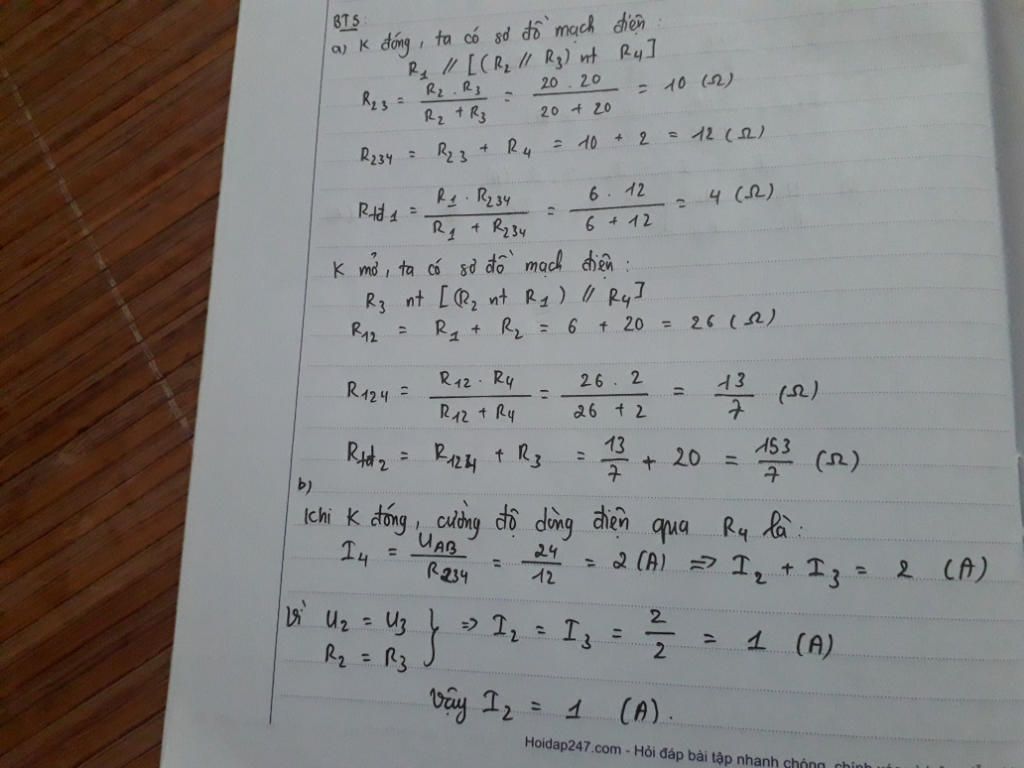 BT5:
a) K đóng, ta có sơ đồ mạch điện:
R1 // [(R2 // R3) nt R4]
R23 = R2 . R3 / R2 + R3 = 20 . 20 / 20 + 20 = 10 (Ω)
R234 = R23 + R4 = 10 + 2 = 12 (Ω)
Rtđ1 = R1 . R234 / R1 + R234 = 6 . 12 / 6 + 12 = 4 (Ω)
K mở, ta có sơ đồ mạch điện:
R3 nt [(R2 nt R1) // R4]
R12 = R1 + R2 = 6 + 20 = 26 (Ω)
R124 = R12 . R4 / R12 + R4 = 26 . 2 / 26 + 2 = 13 / 7 (Ω)
Rtđ2 = R124 + R3 = 13 / 7 + 20 = 153 / 7 (Ω)
b)
Khi K đóng, cường độ dòng điện qua R4 là:
I4 = UAB / R234 = 24 / 12 = 2 (A) => I2 + I3 = 2 (A)
Vì U2 = U3
R2 = R3 } => I2 = I3 = 2 / 2 = 1 (A)
Vậy I2 = 1 (A).
Hoidap247.com - Hỏi đáp bài tập nhanh chóng, chính